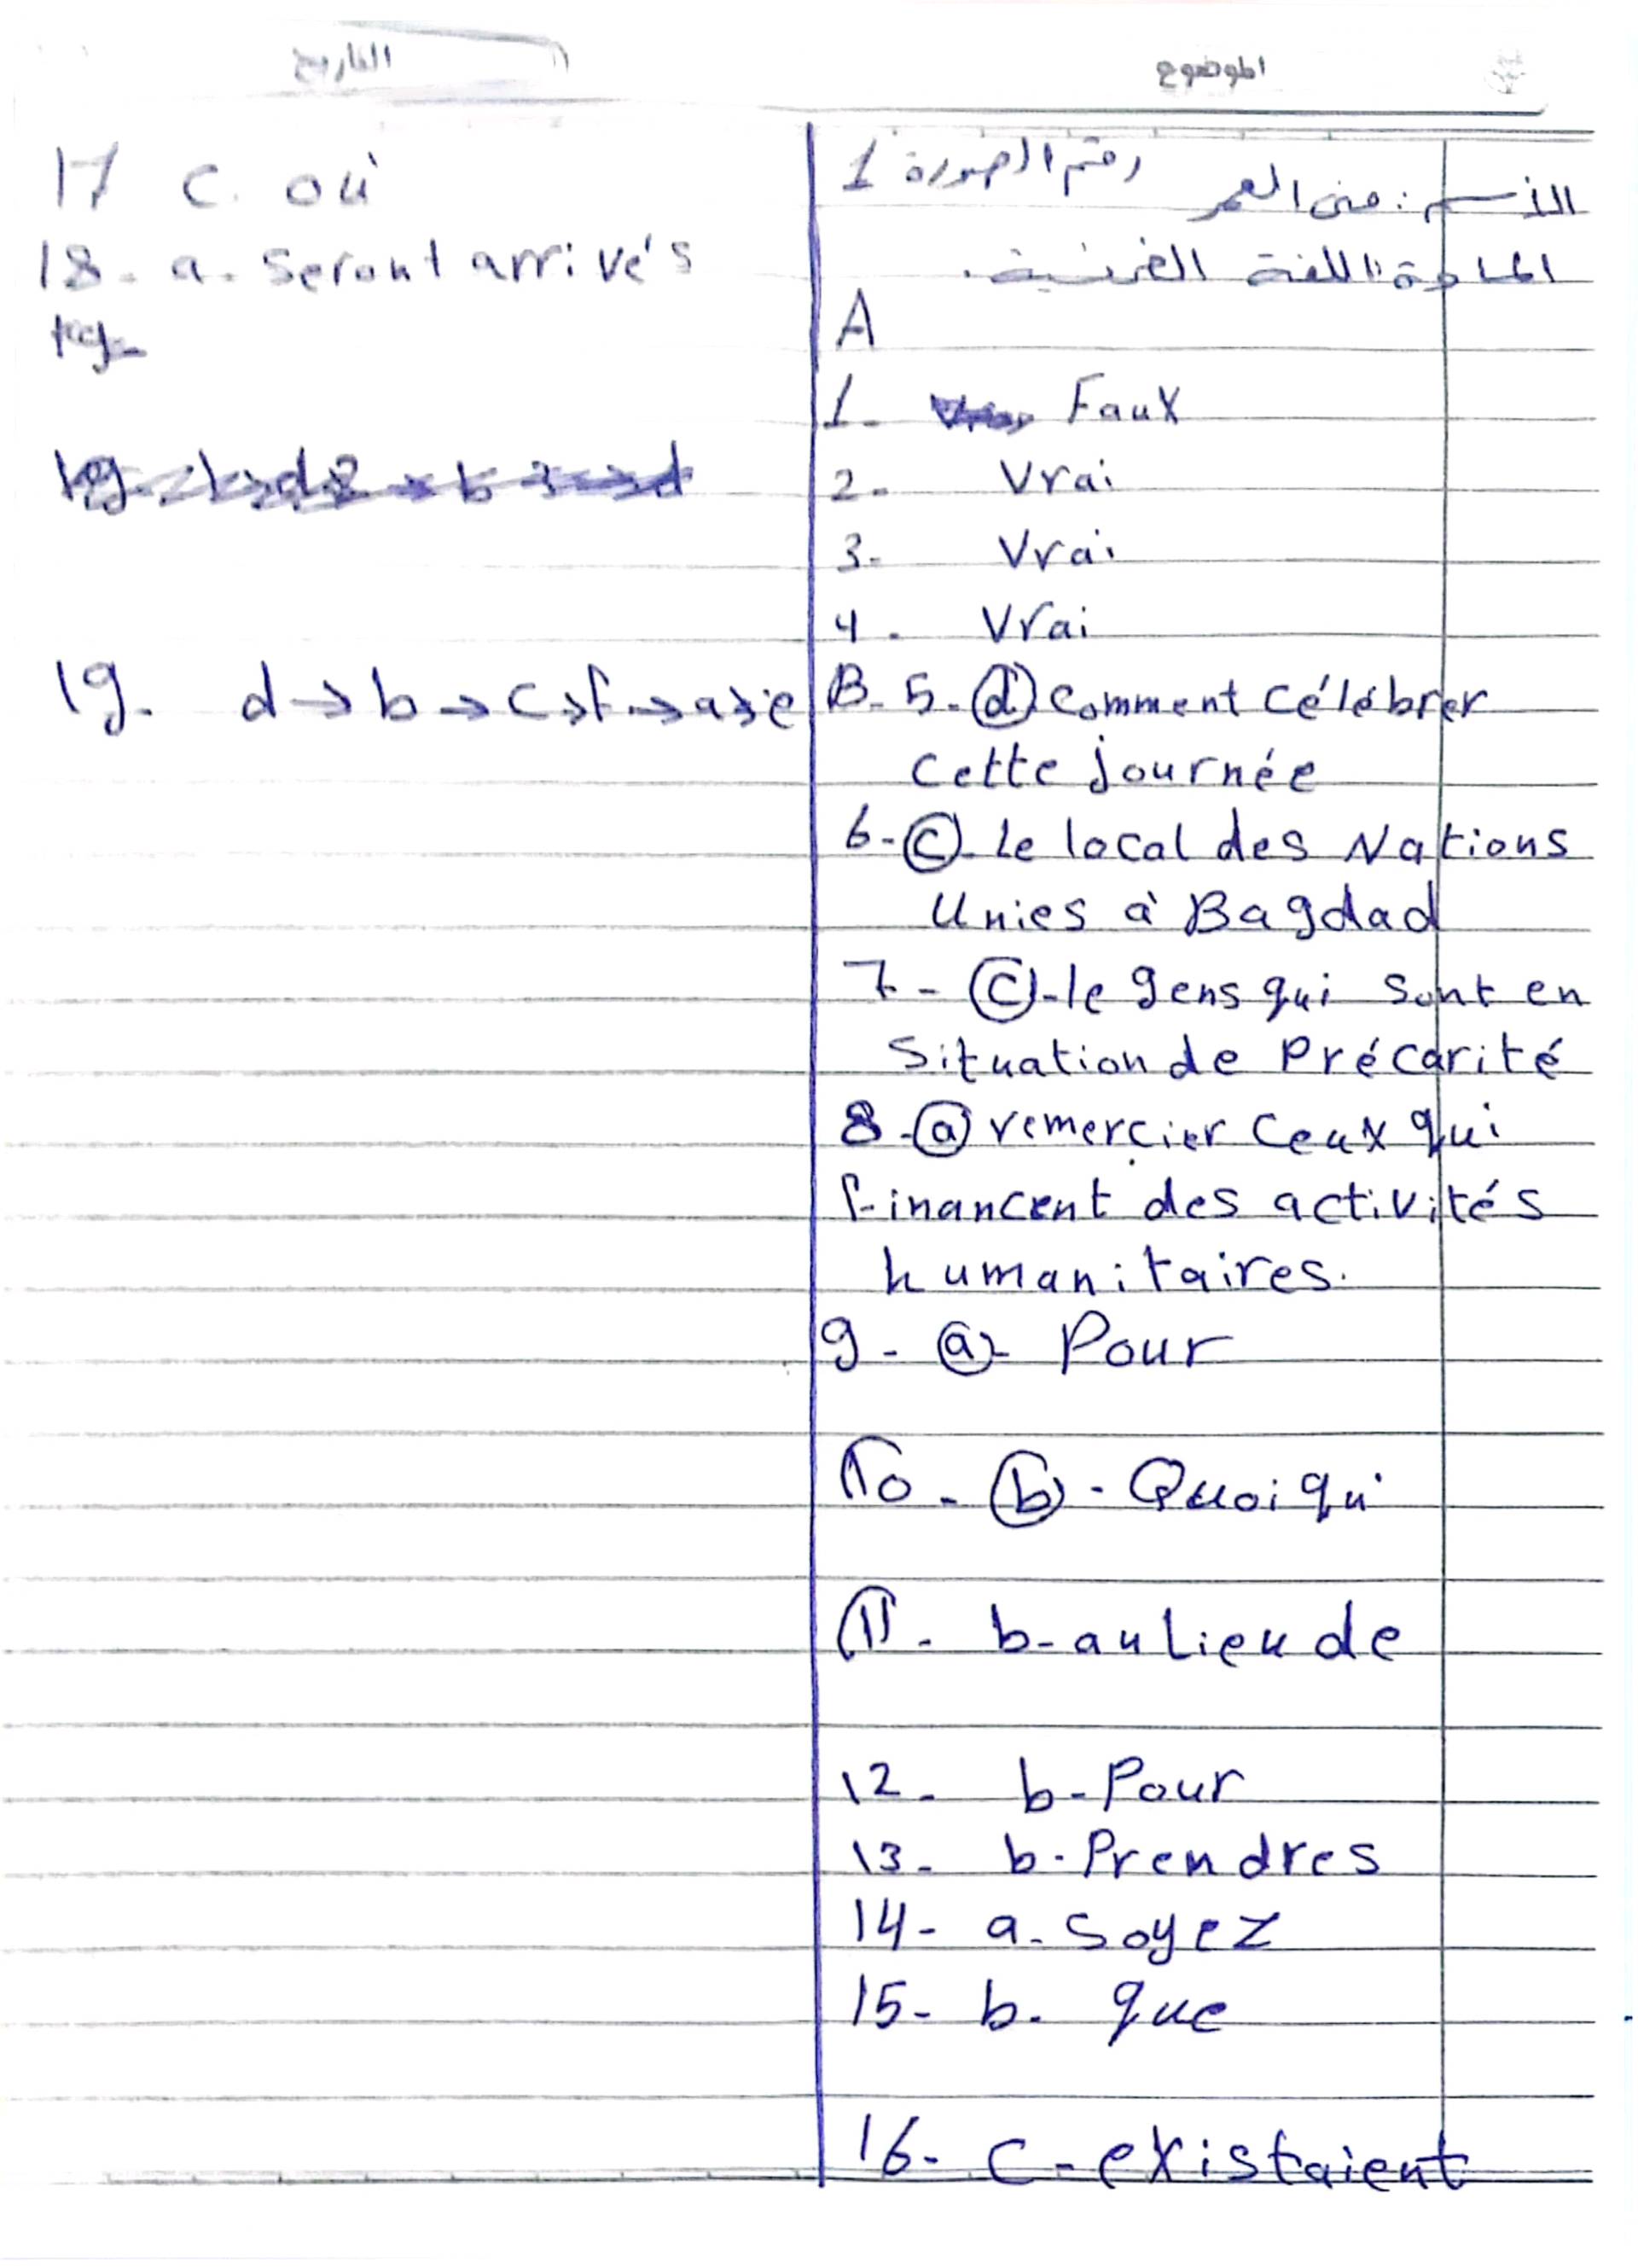 الموضوع
التاريخ
الاسم: منى العمر رقم الصورة 1
المادة: اللغة الفرنسية.
A
1- Faux
2- Vrai
3- Vrai
4- Vrai
B. 5- d comment célébrer
cette journée
6- c- le local des Nations
Unies à Bagdad
7- c-le gens qui sont en
situation de Précarité
8-a remercier ceux qui
financent des activités
humanitaires.
9- a- Pour
10- b- Quoiqu'
11- b- au lieu de
12- b- Pour
13- b- Prendres
14- a- soyez
15- b- que
16- c- existaient
17 c. où
18- a- seront arrivés
19-
19- d→b→c→f→a→e